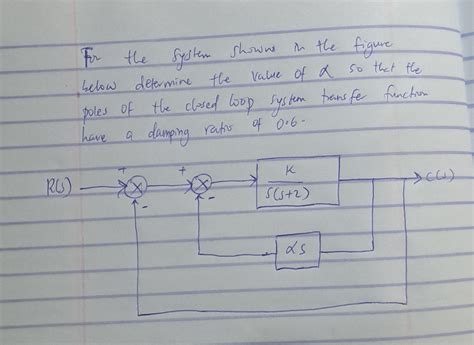 For the system shown in the figure
below determine the value of α so that the
poles of the closed loop system transfer function
have a damping ratio of 0.6.
+ + K
R(s) C(s)
- - s(s+2)
αs